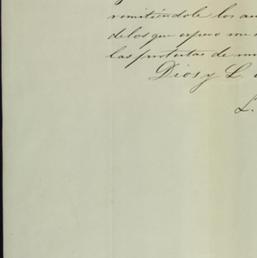 remitiéndole los
de los que espero me
las protestas de
Dios y L.
L.